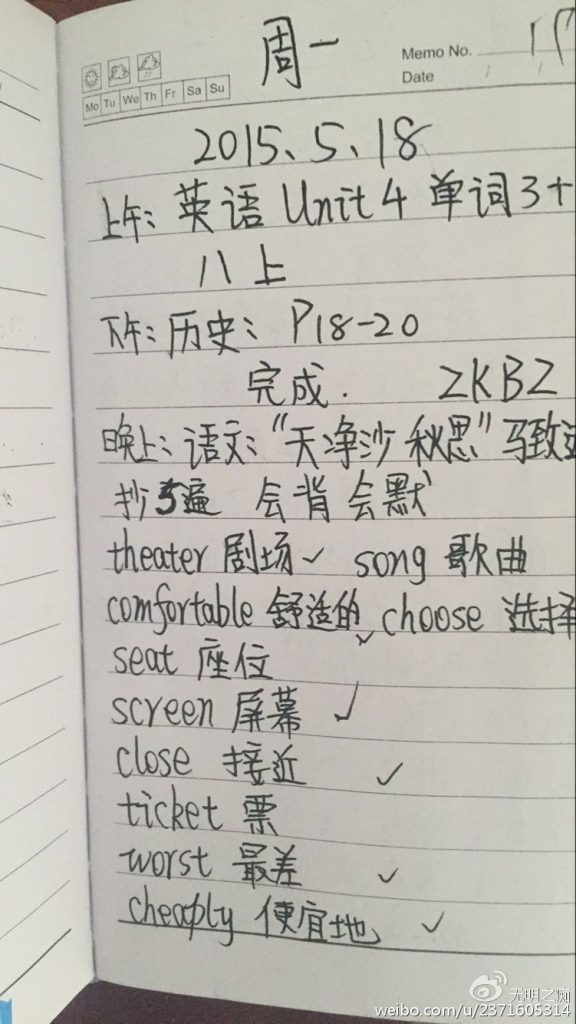 周一
Memo No.
Date / /
Mo Tu We Th Fr Sa Su
2015、5、18
上午：英语 Unit 4 单词3+
八上
下午：历史：P18-20
完成. ZKBZ
晚上：语文："天净沙 秋思"马致
抄5遍 会背 会默
theater 剧场✓ song 歌曲
comfortable 舒适的✓ choose 选择
seat 座位
screen 屏幕 ✓
close 接近 ✓
ticket 票
worst 最差 ✓
cheaply 便宜地 ✓
无明之痴
weibo.com/u/2371605314